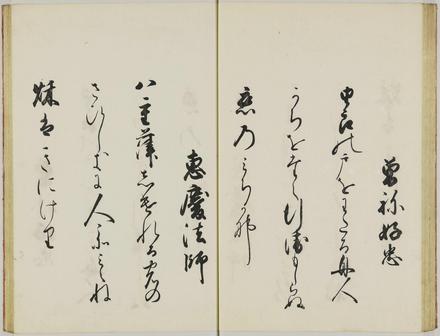 曾祢好忠
由良の戸をわたる舟人
かちをたえ行衛もしらぬ
恋乃みちかな
惠慶法師
八重葎しけれるやとの
さひしきに人こそみえね
秌はきにけり